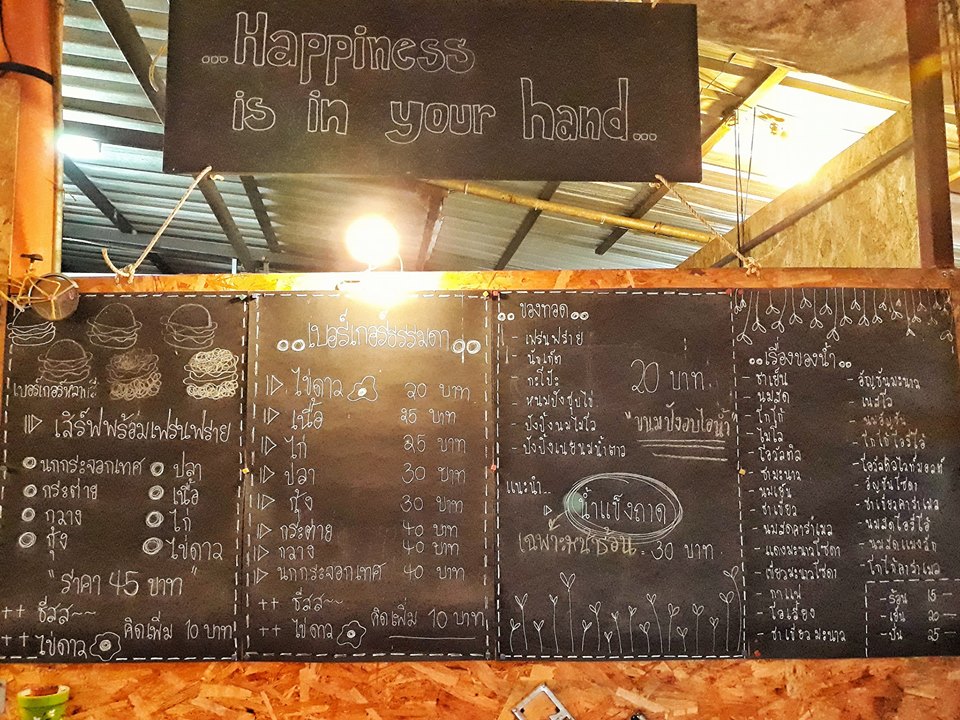 ...Happiness
is in your hand...
เบอร์เกอร์
เสิร์ฟพร้อมเฟรนฟราย
นกกระจอกเทศ
กระต่าย
กวาง
กุ้ง
ปลา
เนื้อ
ไก่
ไข่ดาว
"ราคา 45 บาท"
++ ชีสส~~
++ ไข่ดาว คิดเพิ่ม 10 บาท
เบอร์เกอร์ธรรมดา
ไข่ดาว 20 บาท
เนื้อ 25 บาท
ไก่ 25 บาท
ปลา 30 บาท
กุ้ง 30 บาท
กระต่าย 40 บาท
กวาง 40 บาท
นกกระจอกเทศ 40 บาท
++ ชีสส~~
++ ไข่ดาว คิดเพิ่ม 10 บาท
ของทอด
- เฟรนฟราย
- นักเก็ต
- กะโป๊ะ
- หนมปังชุบไข่
- ปังปิ้งนมไมโล
- ปังปิ้งเนยนมน้ำตาล
20 บาท
"ขนมปังอบไอน้ำ"
แนะนำ...
น้ำแข็งถาด
เฉพาะหน้าร้อน 30 บาท
เรื่องของน้ำ
- ชาเย็น
- นมสด
- โกโก้
- ไมโล
- โอวัลติล
- ชามะนาว
- นมเย็น
- ชาเขียว
- นมสดคาราเมล
- แดงมะนาวโซดา
- เขียวมะนาวโซดา
- กาแฟ
- โอเลี้ยง
- ชาเขียวมะนาว
- อัญชันมะนาว
- เนสโล
- นมอัญชัน
- โกโก้โอรีโอ้
- โอวัลติลไวท์มอลต์
- อัญชันโซดา
- ชาเขียวคาราเมล
- นมสดโอรีโอ้
- โกโก้คาราเมล
- ร้อน 15 —
- เย็น 20 —
- ปั่น 25 —